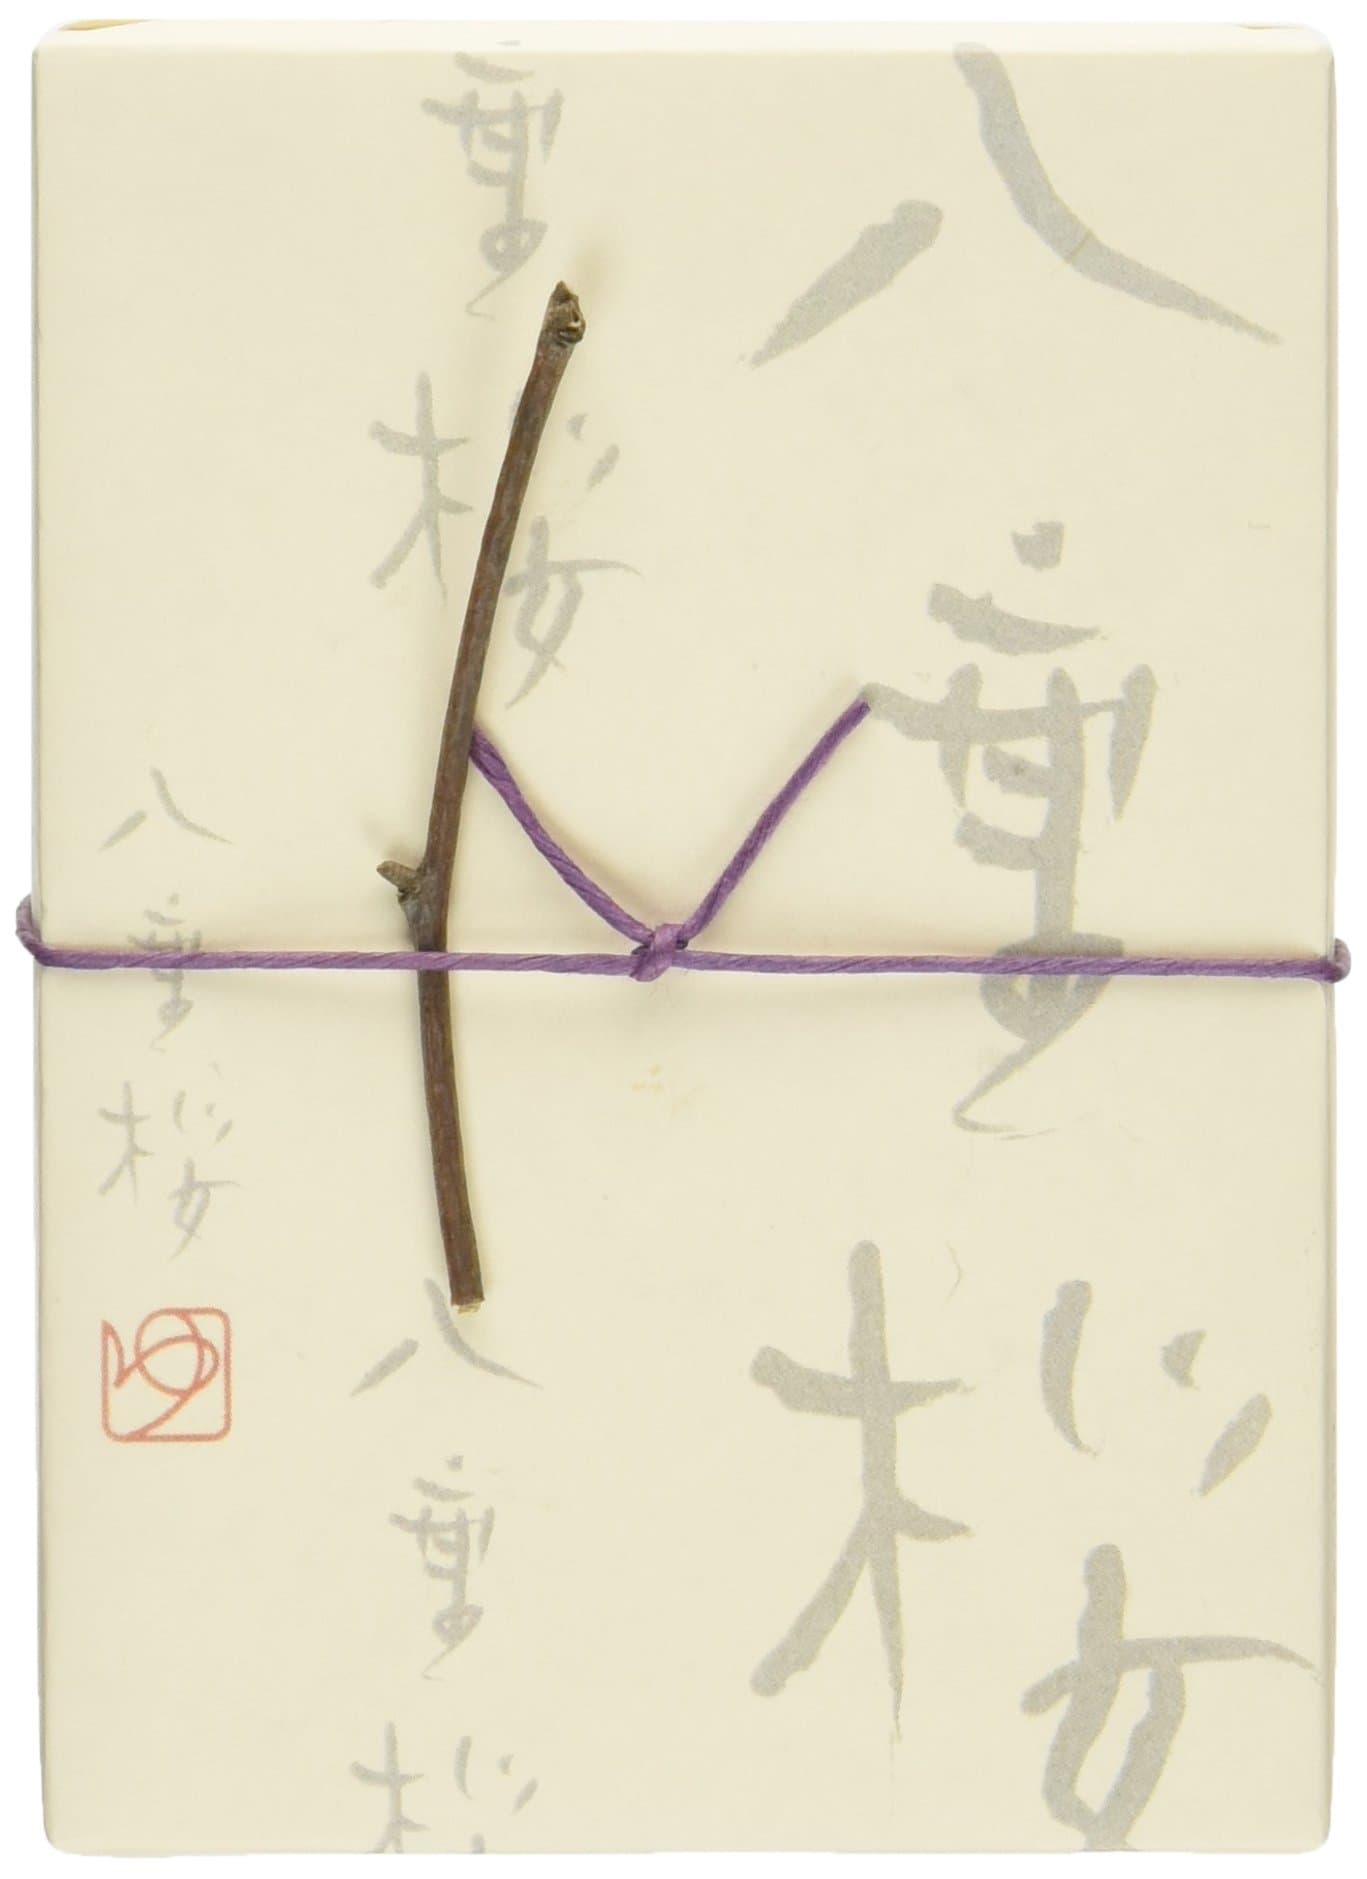 八重桜
重桜
八重桜
八重桜